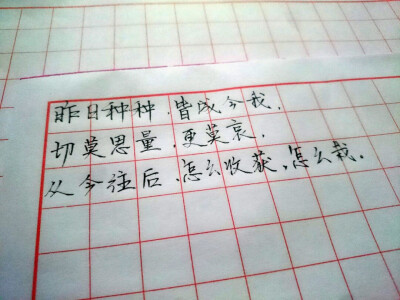 昨日种种,皆成今我,
切莫思量,更莫哀,
从今往后,怎么收获,怎么栽.